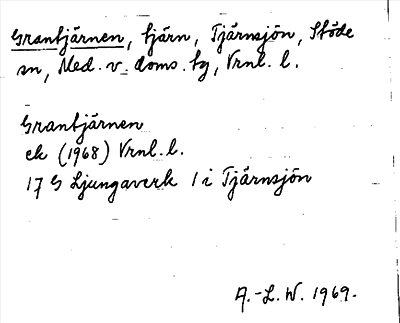 Grantjärnen, tjärn, Tjärnsjön, Stöde
sn, Med. v. doms. tg, Vrnl. l.
Grantjärnen
ek (1968) Vrnl. l.
17 G Ljungaverk 1 i Tjärnsjön
A.-L. W. 1969.